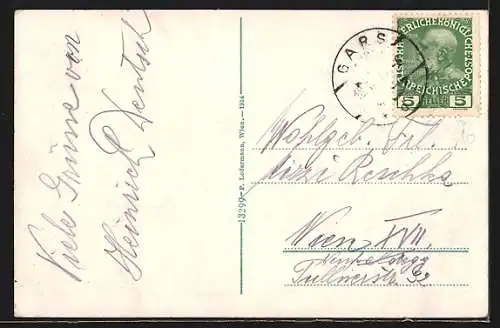 Viele Grüsse von
Heinrich Deutsch
13299 - P. Ledermann, Wien. - 1914
GARS
KAISERLICHE KÖNIGLICHE ÖSTERREICHISCHE POST
5 HELLER 5
Wohlgeb. Frl.
Mizi Reschka
Wien XVII.